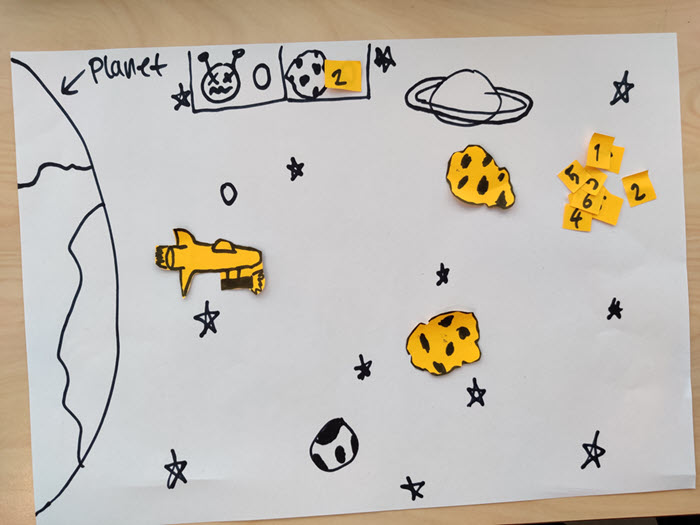 Planet
0 2
1
2
6
4